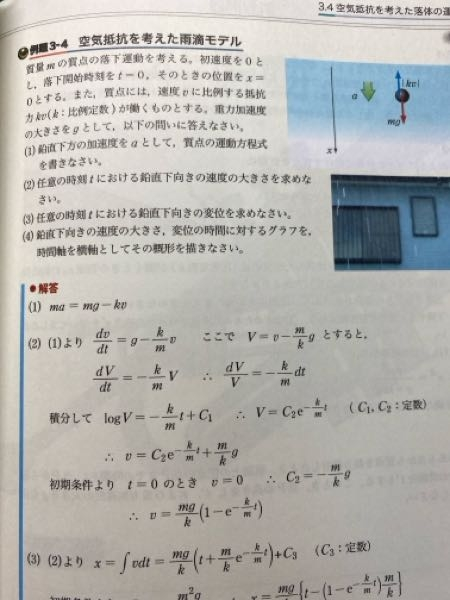 3.4 空気抵抗を考えた落体の運
例題3-4 空気抵抗を考えた雨滴モデル
質量 m の質点の落下運動を考える。初速度を 0 と
し、落下開始時刻を t = 0、そのときの位置を x =
0 とする。また、質点には、速度 v に比例する抵抗
力 kv(k：比例定数)が働くものとする。重力加速度
の大きさを g として、以下の問いに答えなさい。
(1) 鉛直下方の加速度を a として、質点の運動方程式
を書きなさい。
(2) 任意の時刻 t における鉛直下向きの速度の大きさを求めな
さい。
(3) 任意の時刻 t における鉛直下向きの変位を求めなさい。
(4) 鉛直下向きの速度の大きさ、変位の時間に対するグラフを、
時間軸を横軸としてその概形を描きなさい。
|kv|
a
mg
x
解答
(1) ma = mg − kv
(2) (1)より dv/dt = g − (k/m)v ここで V = v − (m/k)g とすると、
dV/dt = −(k/m)V ∴ dV/V = −(k/m)dt
積分して log V = −(k/m)t + C₁ ∴ V = C₂e^{−(k/m)t} (C₁, C₂：定数)
∴ v = C₂e^{−(k/m)t} + (m/k)g
初期条件より t = 0 のとき v = 0 ∴ C₂ = −(m/k)g
∴ v = (mg/k)(1 − e^{−(k/m)t})
(3) (2)より x = ∫vdt = (mg/k)(t + (m/k)e^{−(k/m)t}) + C₃ (C₃：定数)
m²g mg{t − (1 − e^{−(k/m)t})m